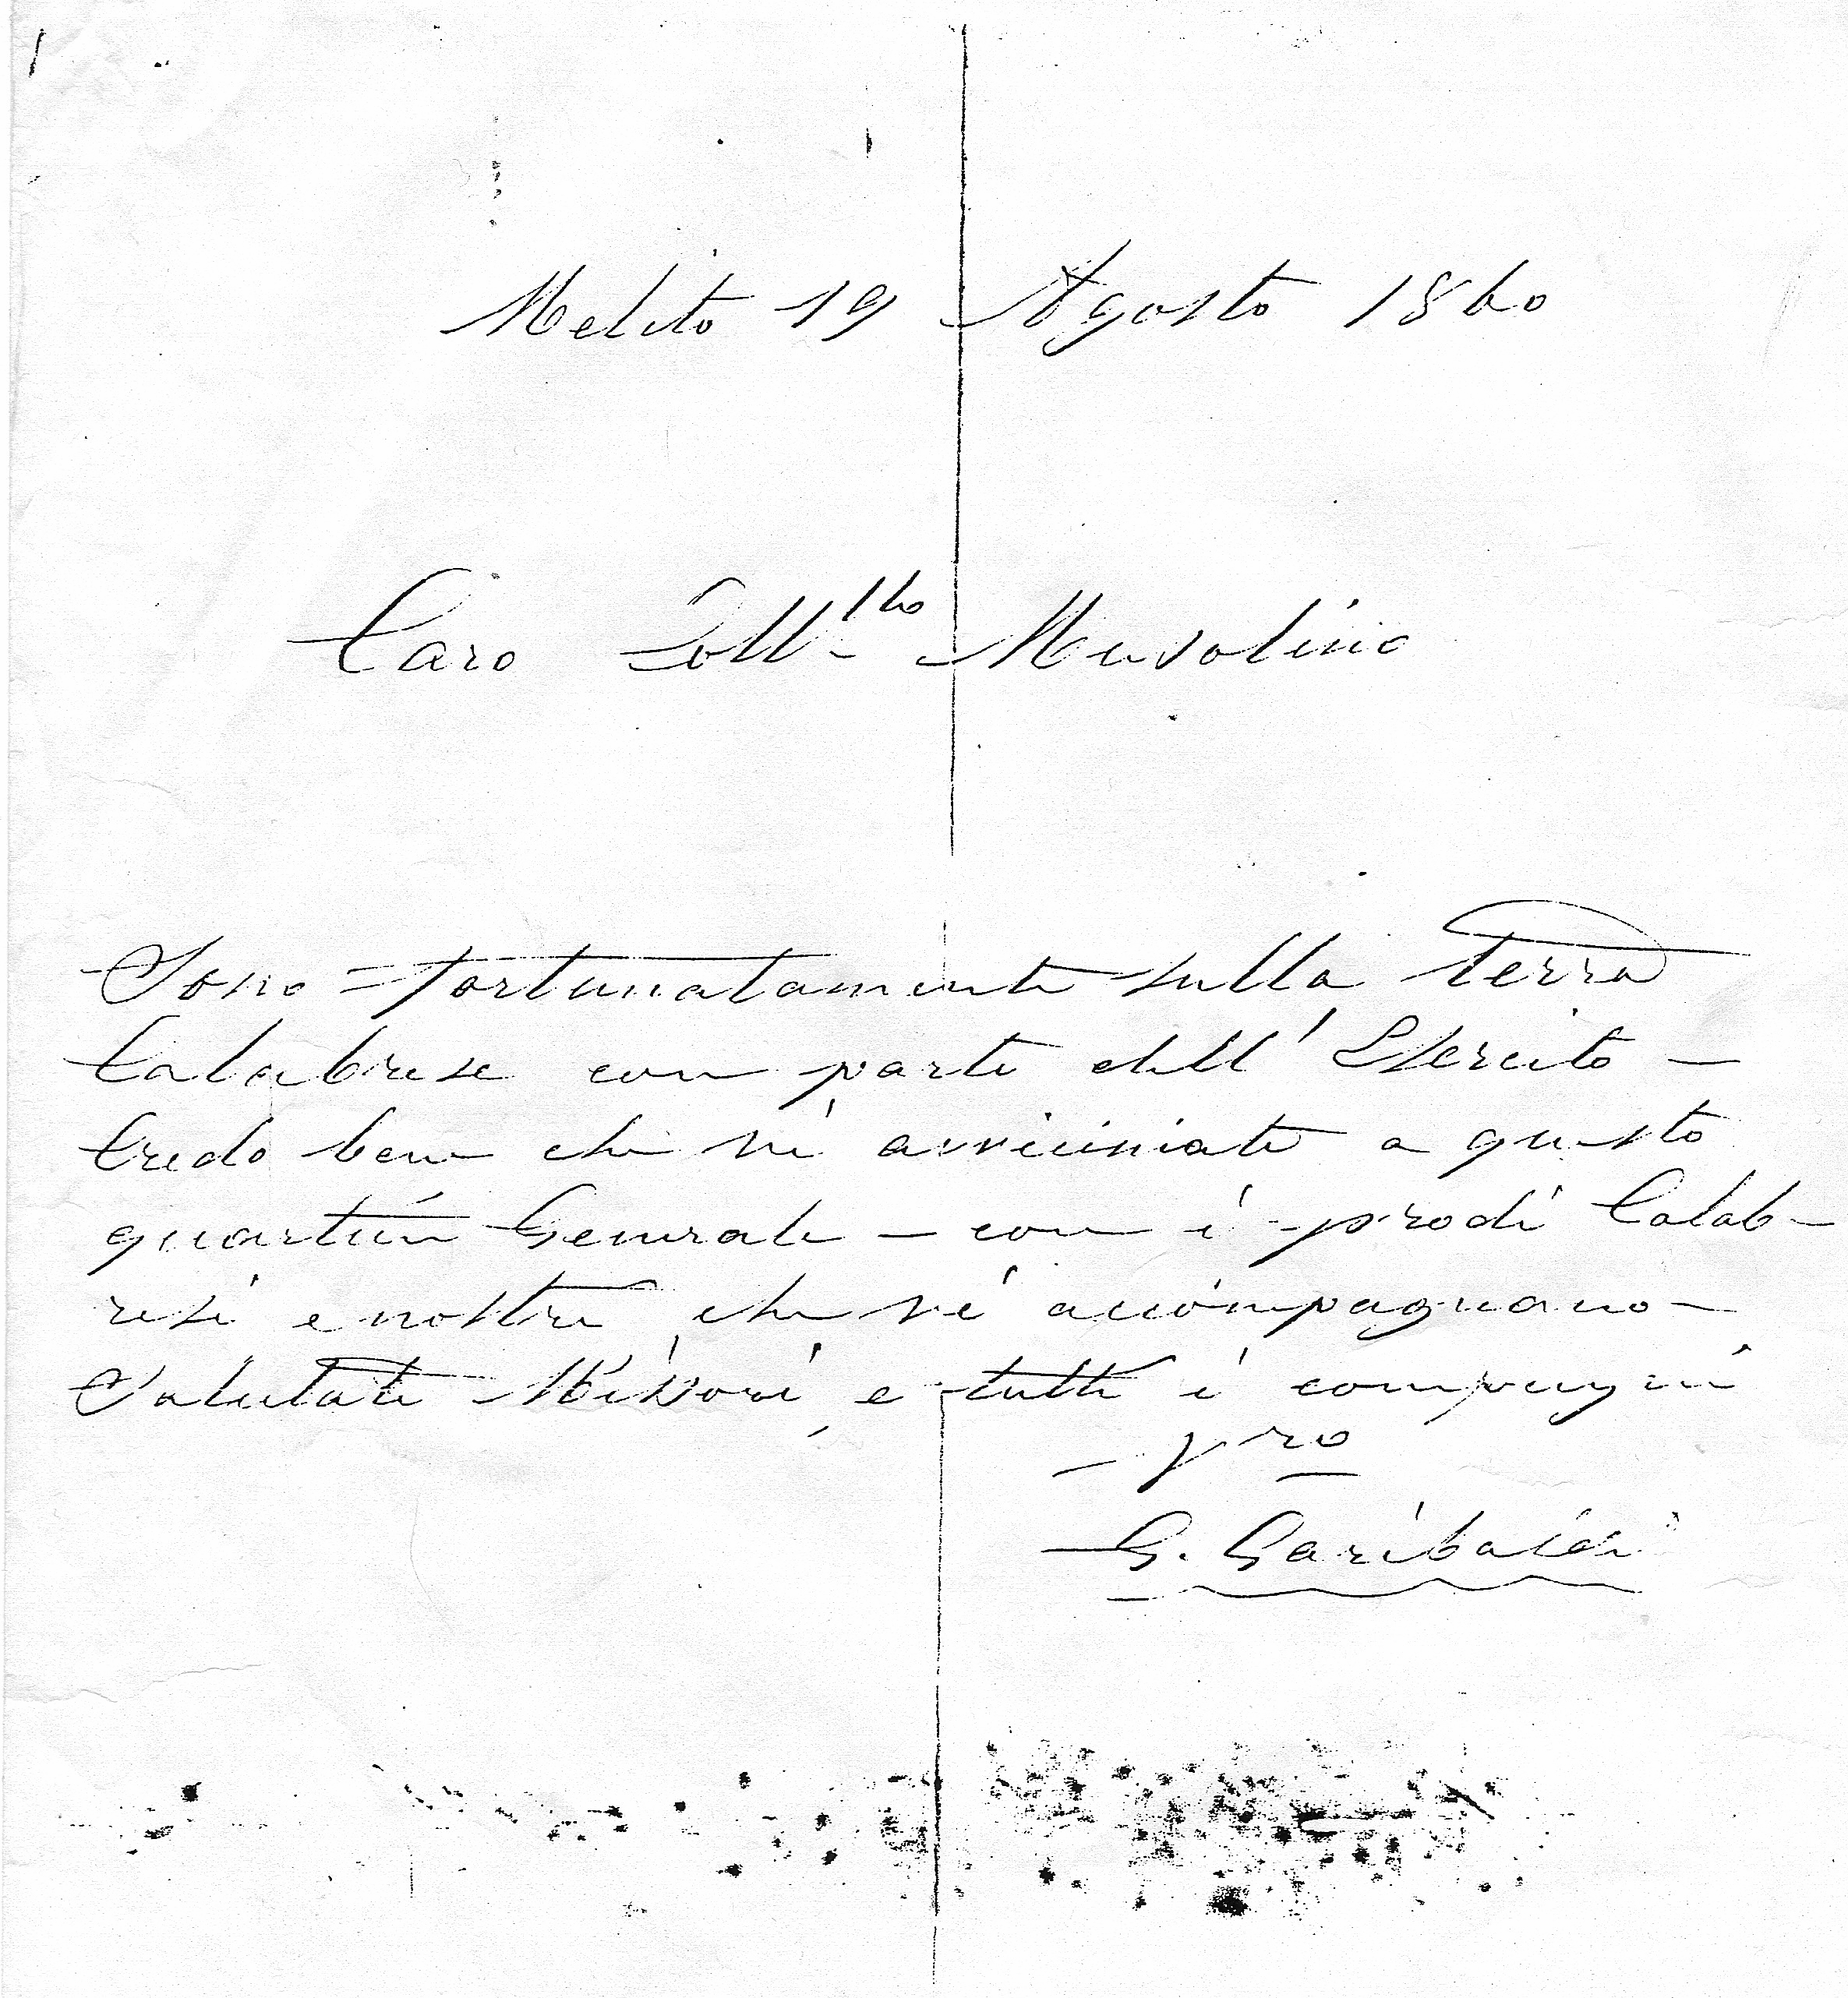 Melito 19 Agosto 1860
Caro Musolino
Sono fortunatamente sulla terra
Calabrese con parte dell' Esercito –
Credo bene che vi avviciniate a questo
quartier Generale – con i prodi Calab-
resi e nostri che vi accompagnano –
Salutate Missori e tutti i compagni
– Vro
G. Garibaldi